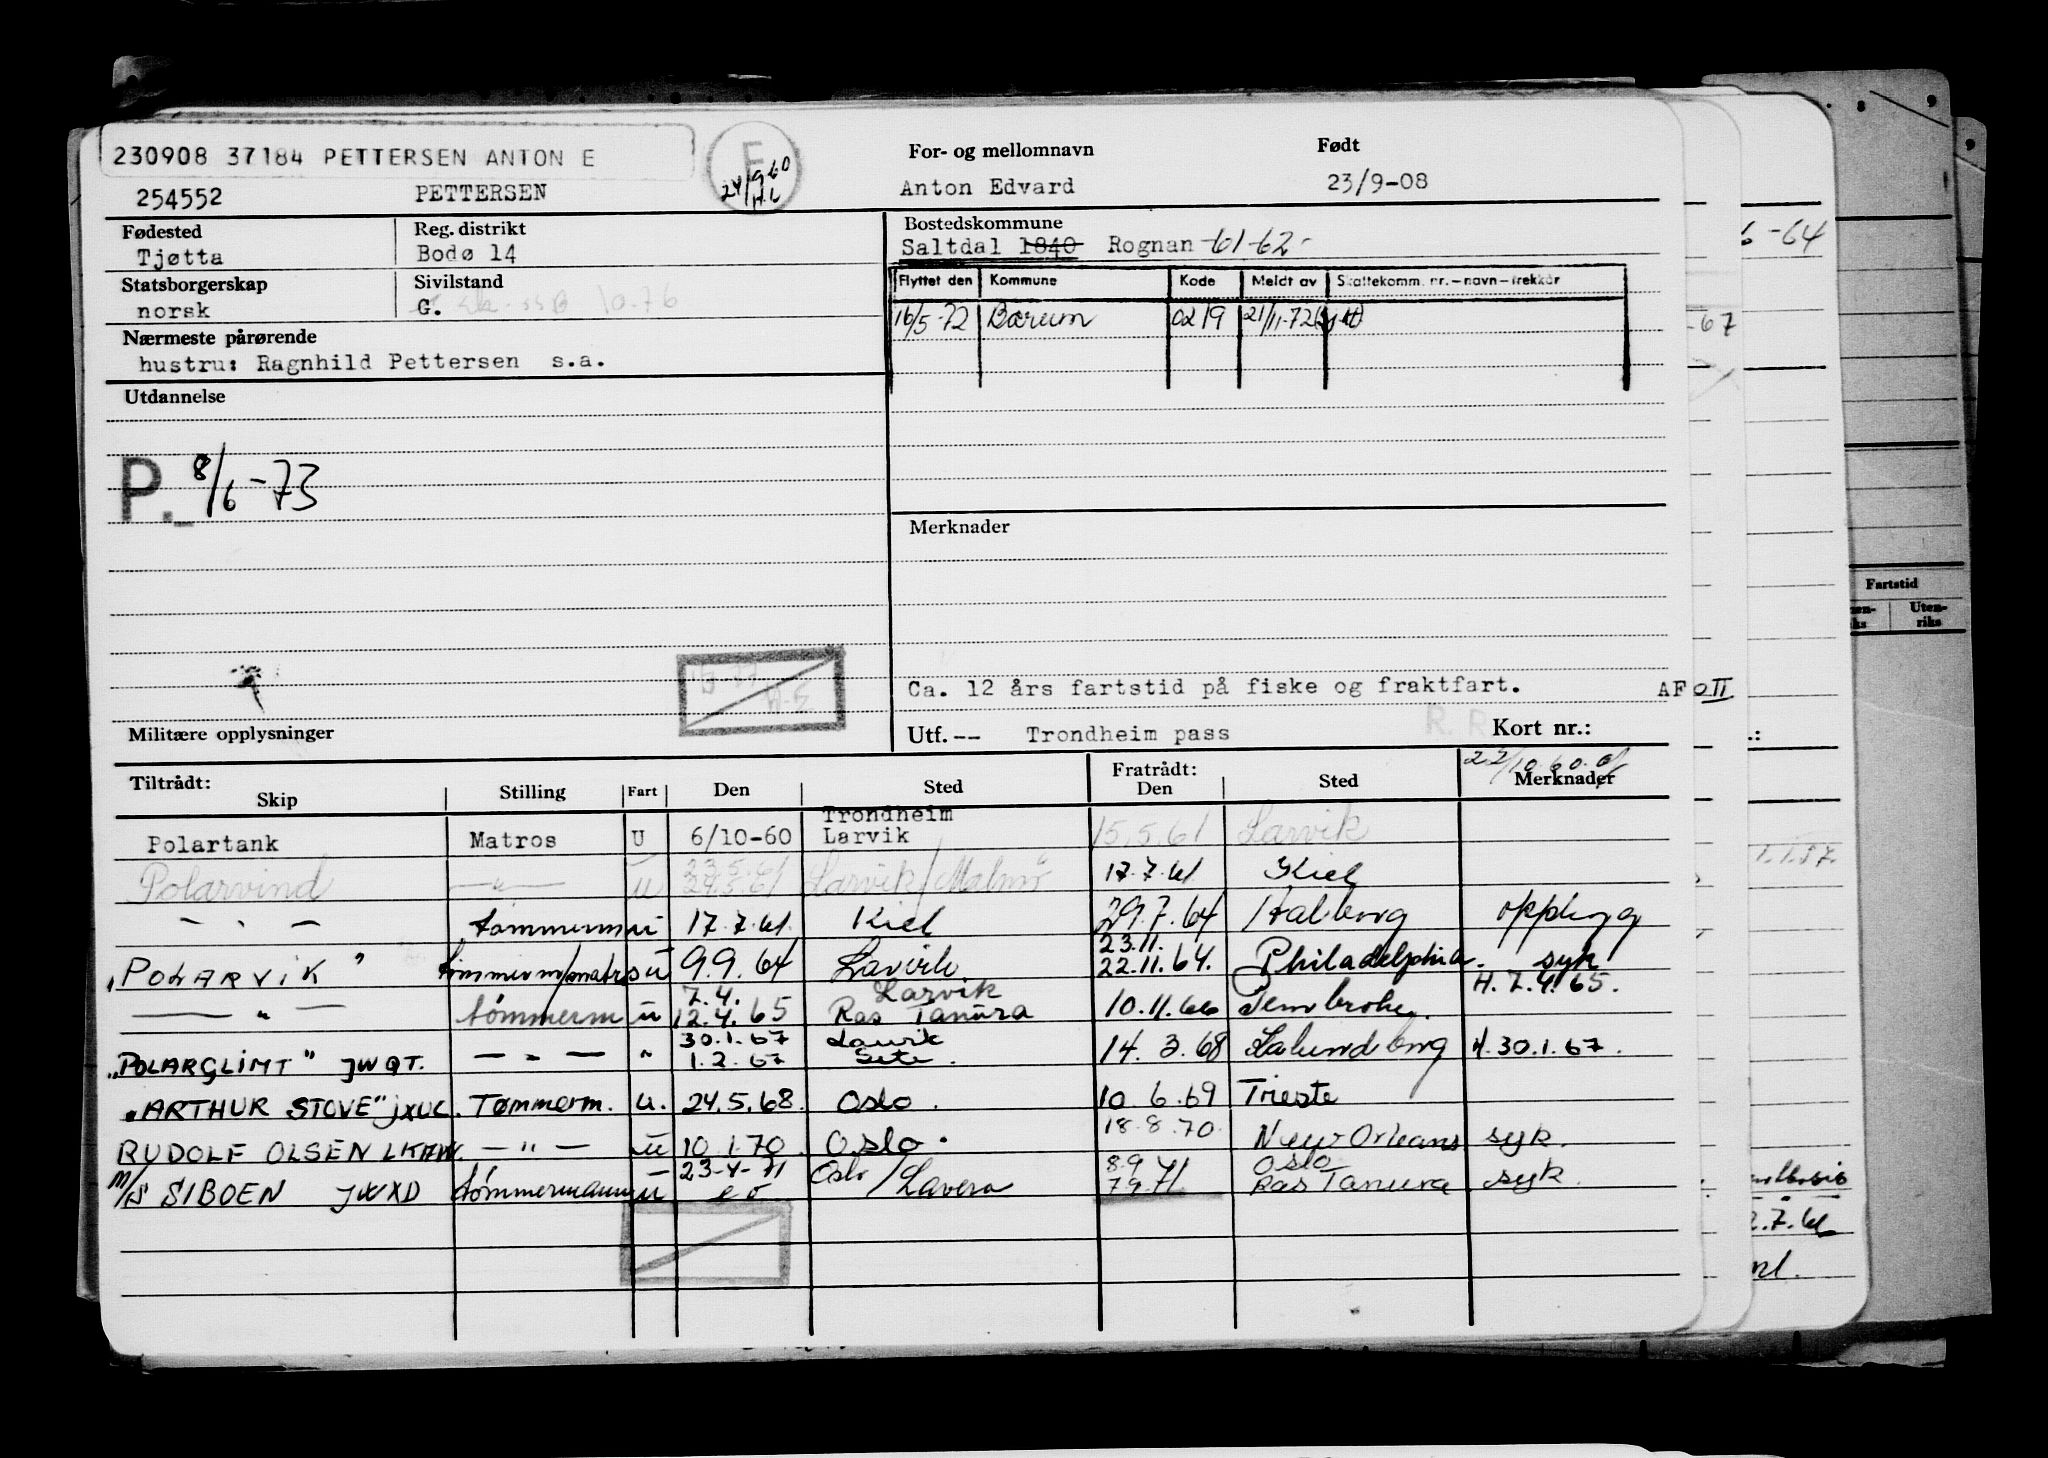 230908 37184 PETTERSEN ANTON E
254552 PETTERSEN
F
24/9 60
H.L
For- og mellomnavn
Anton Edvard
Født
23/9-08
Fødested
Tjøtta
Reg. distrikt
Bodø 14
Bostedskommune
Saltdal 1840 Rognan -61-62-
Statsborgerskap
norsk
Sivilstand
G.
10.76
Flyttet den Kommune Kode Meldt av Skattekomm. nr.-navn-trekkår
16/5-72 Bærum 0219 21/11-72
Nærmeste pårørende
hustru: Ragnhild Pettersen s.a.
Utdannelse
P. 8/6-73
Merknader
Ca. 12 års fartstid på fiske og fraktfart.
AF O II
Militære opplysninger
Utf.-- Trondheim pass
R. R
Kort nr.:
Tiltrådt:
Skip Stilling Fart Den Sted
Fratrådt:
Den Sted Merknader
Polartank Matros U 6/10-60 Trondheim Larvik 15.5.61 Larvik
Polarvind —"— u 23.5.61 24.5.61 Larvik/Malmö 17.7.61 Kiel
— " — tømmerm u 17.7.61 Kiel 29.7.64 Aalborg opphugg
"POLARVIK" tømmerm/matros u 9.9.64 Larvik 23.11. 22.11.64. Philadelphia. syk
— " — tømmerm u 7.4. 12.4.65 Larvik Ras Tanura 10.11.66 Pembroke. H. 7.4.65.
"POLARGLIMT" JWQT. — " — " 30.1.67 1.2.67 Larvik Sete. 14.3.68 Kalundborg H. 30.1.67.
"ARTHUR STOVE" JXUC. Tømmerm. u. 24.5.68. Oslo. 10.6.69 Trieste
RUDOLF OLSEN — " — u 10.1.70. Oslo. 18.8.70. New Orleans syk.
M/S SIBOEN JWXD tømmermann u 23-4-71 Oslo/Lavera 8.9 7.9.71 Oslo Ras Tanura syk.
6-64
-67
Fartstid
Uten-
riks
1.1.57.
2.7.61